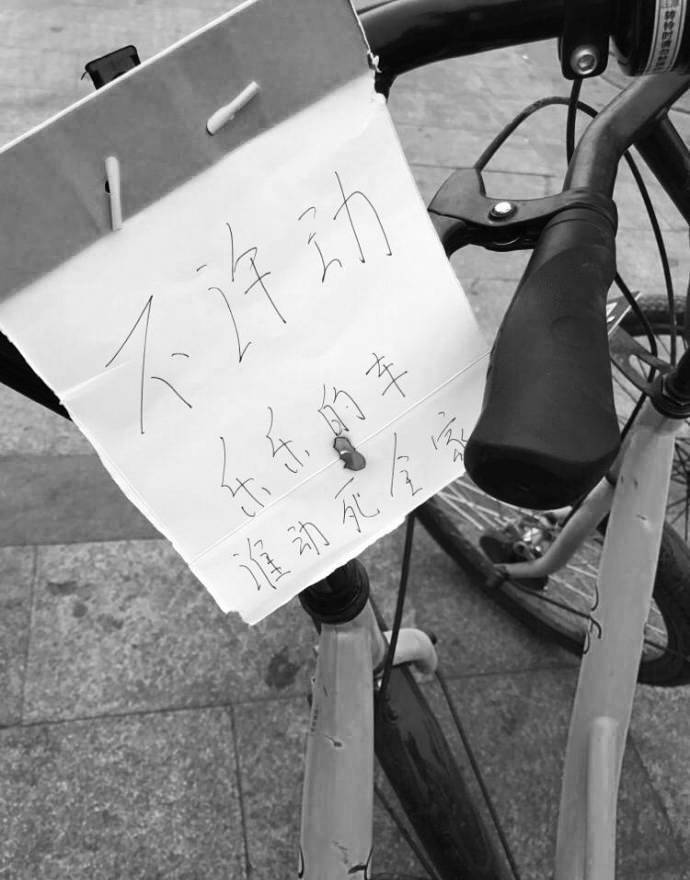 不许动
乐乐的车
谁动死全家